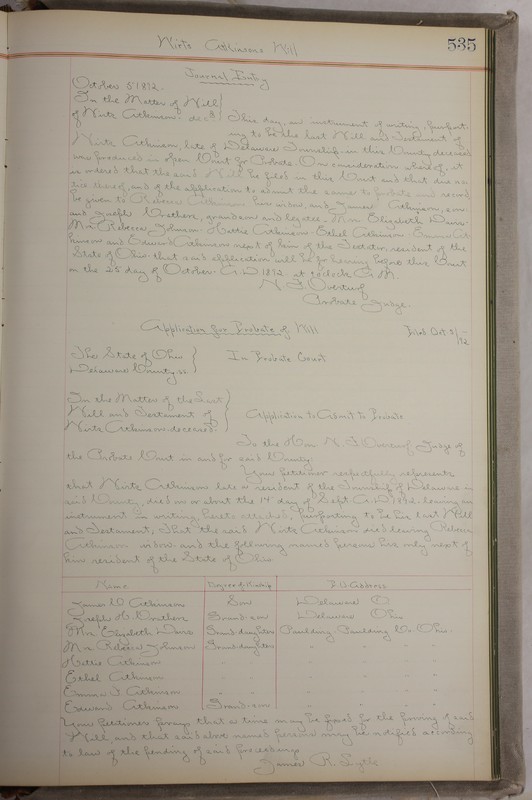 Wirts Atkinsons Will 535
Journal Entry
October 5 1892.
In the Matter of Will
of Wirts Atkinson, decd This day, an instrument of writing, purport-
ing to be the last Will and Testament of
Wirts Atkinson, late of Delaware Township in this County deceased
was produced in open Court for Probate. On consideration whereof, it
is ordered that the said Will be filed in this Court and that due no-
tice thereof, and of the application to admit the same to probate and record
be given to Rebecca Atkinson his widow, and James Atkinson, son
and Joseph Worthen, grandson and legatee, Mrs. Elizabeth
Mrs Rebecca Johnson Hettie Atkinson Ethel Atkinson Emma Atk
inson and Edward Atkinson next of kin of the Testator resident of the
State of Ohio that said application will be for hearing before this Court
on the 25 day of October A.D. 1892. at o'clock A.M.
N. F. Overturf
Probate Judge.
Application for Probate of Will Filed Oct 5/92
The State of Ohio
Delaware County, ss In Probate Court
In the Matter of the Last
Will and Testament of Application to Admit to Probate
Wirts Atkinson deceased.
To the Hon. N. F. Overturf Judge of
the Probate Court in and for said County:
Your petitioner respectfully represents
that Wirts Atkinson late a resident of the Township of Delaware in
said County, died on or about the 14 day of Sept. A.D. 1892, leaving an
instrument in writing, hereto attached, purporting to be his last Will
and Testament, That the said Wirts Atkinson died leaving Rebecca
Atkinson widow and the following named persons his only next of
kin resident of the State of Ohio
Name Degree of Kinship P.O. Address
James W Atkinson Son Delaware O
Joseph H. Worthen Grand-son Delaware Ohio
Mrs. Elizabeth Granddaughter Paulding Paulding Co. Ohio
Mrs Rebecca Johnson Granddaughter " " "
Hettie Atkinson " " " "
Ethel Atkinson " " " "
Emma J. Atkinson " " " "
Edward Atkinson Grand-son " " "
Your petitioner prays that a time may be fixed for the proving of said
Will, and that said above named persons may be notified according
to law of the pending of said proceedings
James R. Lytle